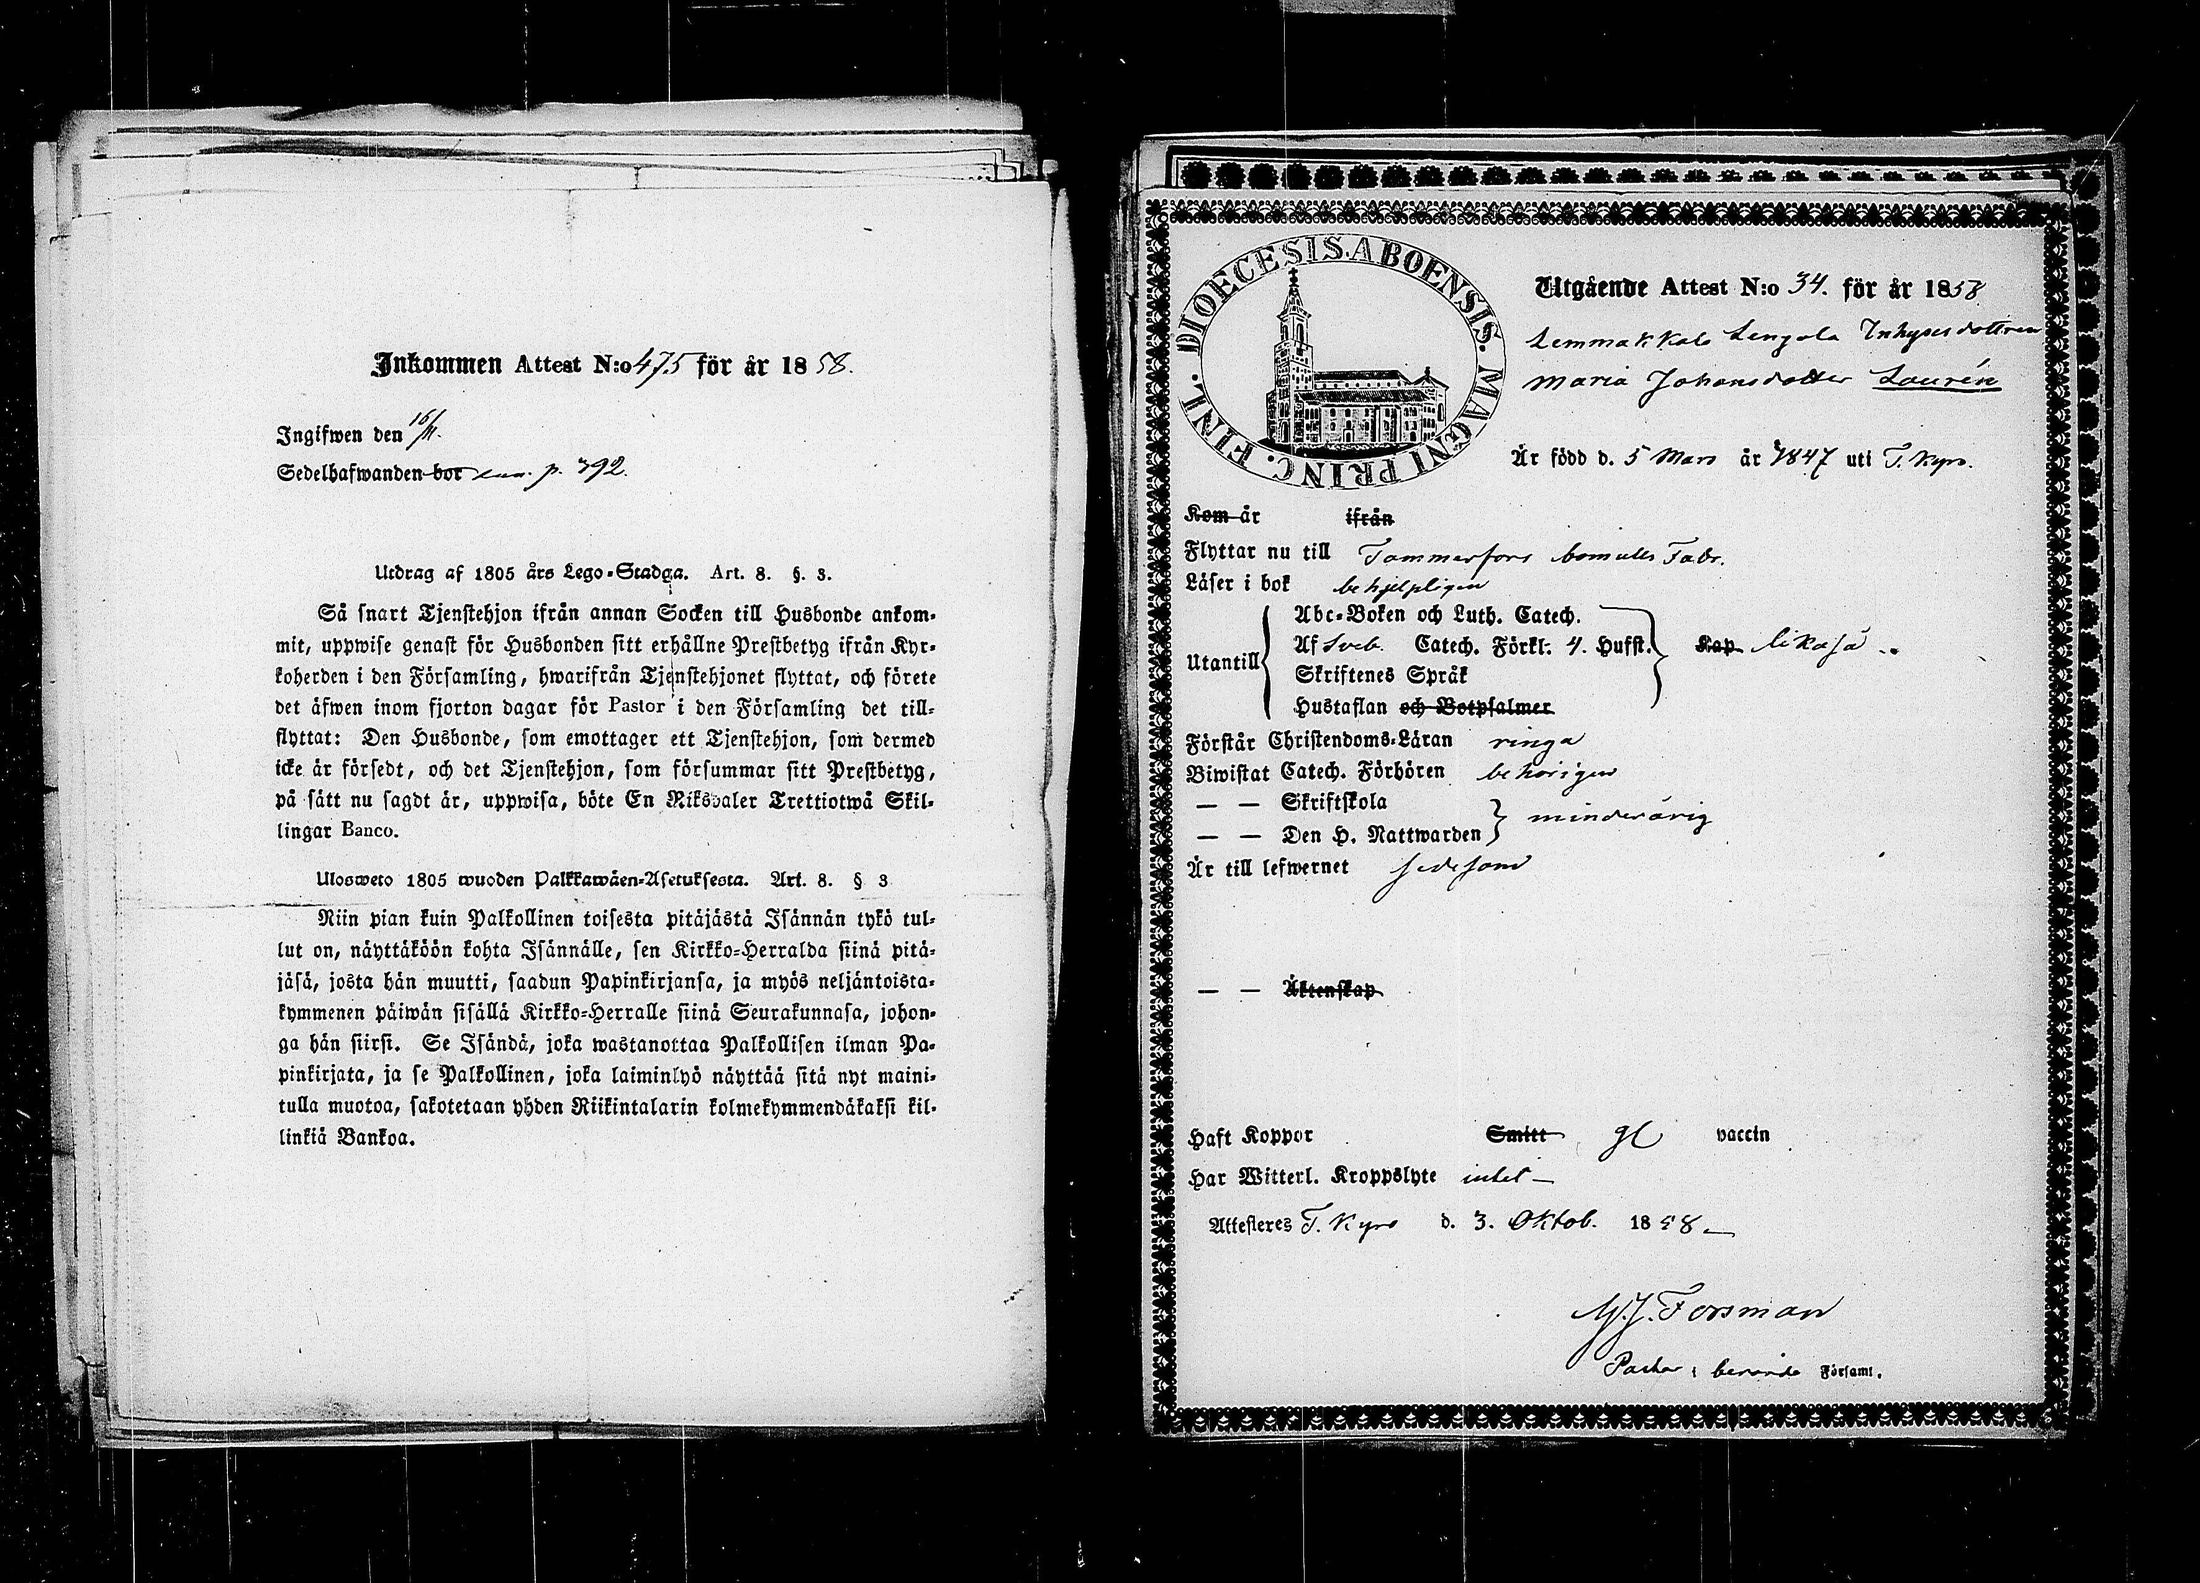 Inkommen Attest N:o 475 för år 1858.
Ingifwen den 16/11.
Sedelhafwanden bor p. 392.
Utdrag af 1805 års Lego-Stadga. Art. 8. §. 3.
Så snart Tjenstehjon ifrån annan Socken till Husbonde ankom-
mit, uppwise genast för Husbonden sitt erhållne Prestbetyg ifrån Kyr-
koherden i den Församling, hwarifrån Tjenstehjonet flyttat, och förete
det äfwen inom fjorton dagar för Pastor i den Församling det till-
flyttat: Den Husbonde, som emottager ett Tjenstehjon, som dermed
icke är försedt, och det Tjenstehjon, som försummar sitt Prestbetyg,
på sätt nu sagdt är, uppwisa, böte En Riksdaler Trettiotwå Skil-
lingar Banco.
Ulosweto 1805 wuoden Palkkawäen-Asetuksesta. Art. 8. § 3
Niin pian kuin Palkollinen toisesta pitäjästä Isännän tykö tul-
lut on, näyttäköön kohta Isännälle, sen Kirkko-Herralda siinä pitä-
jäsä, josta hän muutti, saadun Papinkirjansa, ja myös neljäntoista-
kymmenen päiwän sisällä Kirkko-Herralle siinä Seurakunnasa, johon-
ga hän siirsi. Se Isändä, joka wastanottaa Palkollisen ilman Pa-
pinkirjata, ja se Palkollinen, joka laiminlyö näyttää sitä nyt maini-
tulla muotoa, sakotetaan yhden Riikintalarin kolmekymmendäkaksi kil-
linkiä Bankoa.
DIOECESIS. ABOENSIS. MAGNI PRINC. FINL.
Utgående Attest N:o 34. för år 1858
Lemmakkala Lengola Inhyses dottren
Maria Johansdotter Laurén
Är född d. 5 Mars år 1847 uti T. Kyro.
Kom år ifrån
Flyttar nu till Tammerfors bomulls Fabr.
Läser i bok behjelpligen
Utantill
Abc-Boken och Luth. Catech.
Af Sveb. Catech. Förkl. 4. Hufst. Kap likaså
Skriftenes Språk
Hustaflan och Botpsalmer
Förstår Christendoms-Läran ringa
Biwistat Catech. Förhören behörigen
— — Skriftskola
minderårig
— — Den H. Nattwarden
Är till lefwernet sedesam
— — Äktenskap
Haft Koppor Smitt gl vaccin
Har Witterl. Kroppslyte intet —
Attesteres T. Kyro d. 3. Oktob. 1858 —
M. J. Forsman
Pastor i berörde Församl.